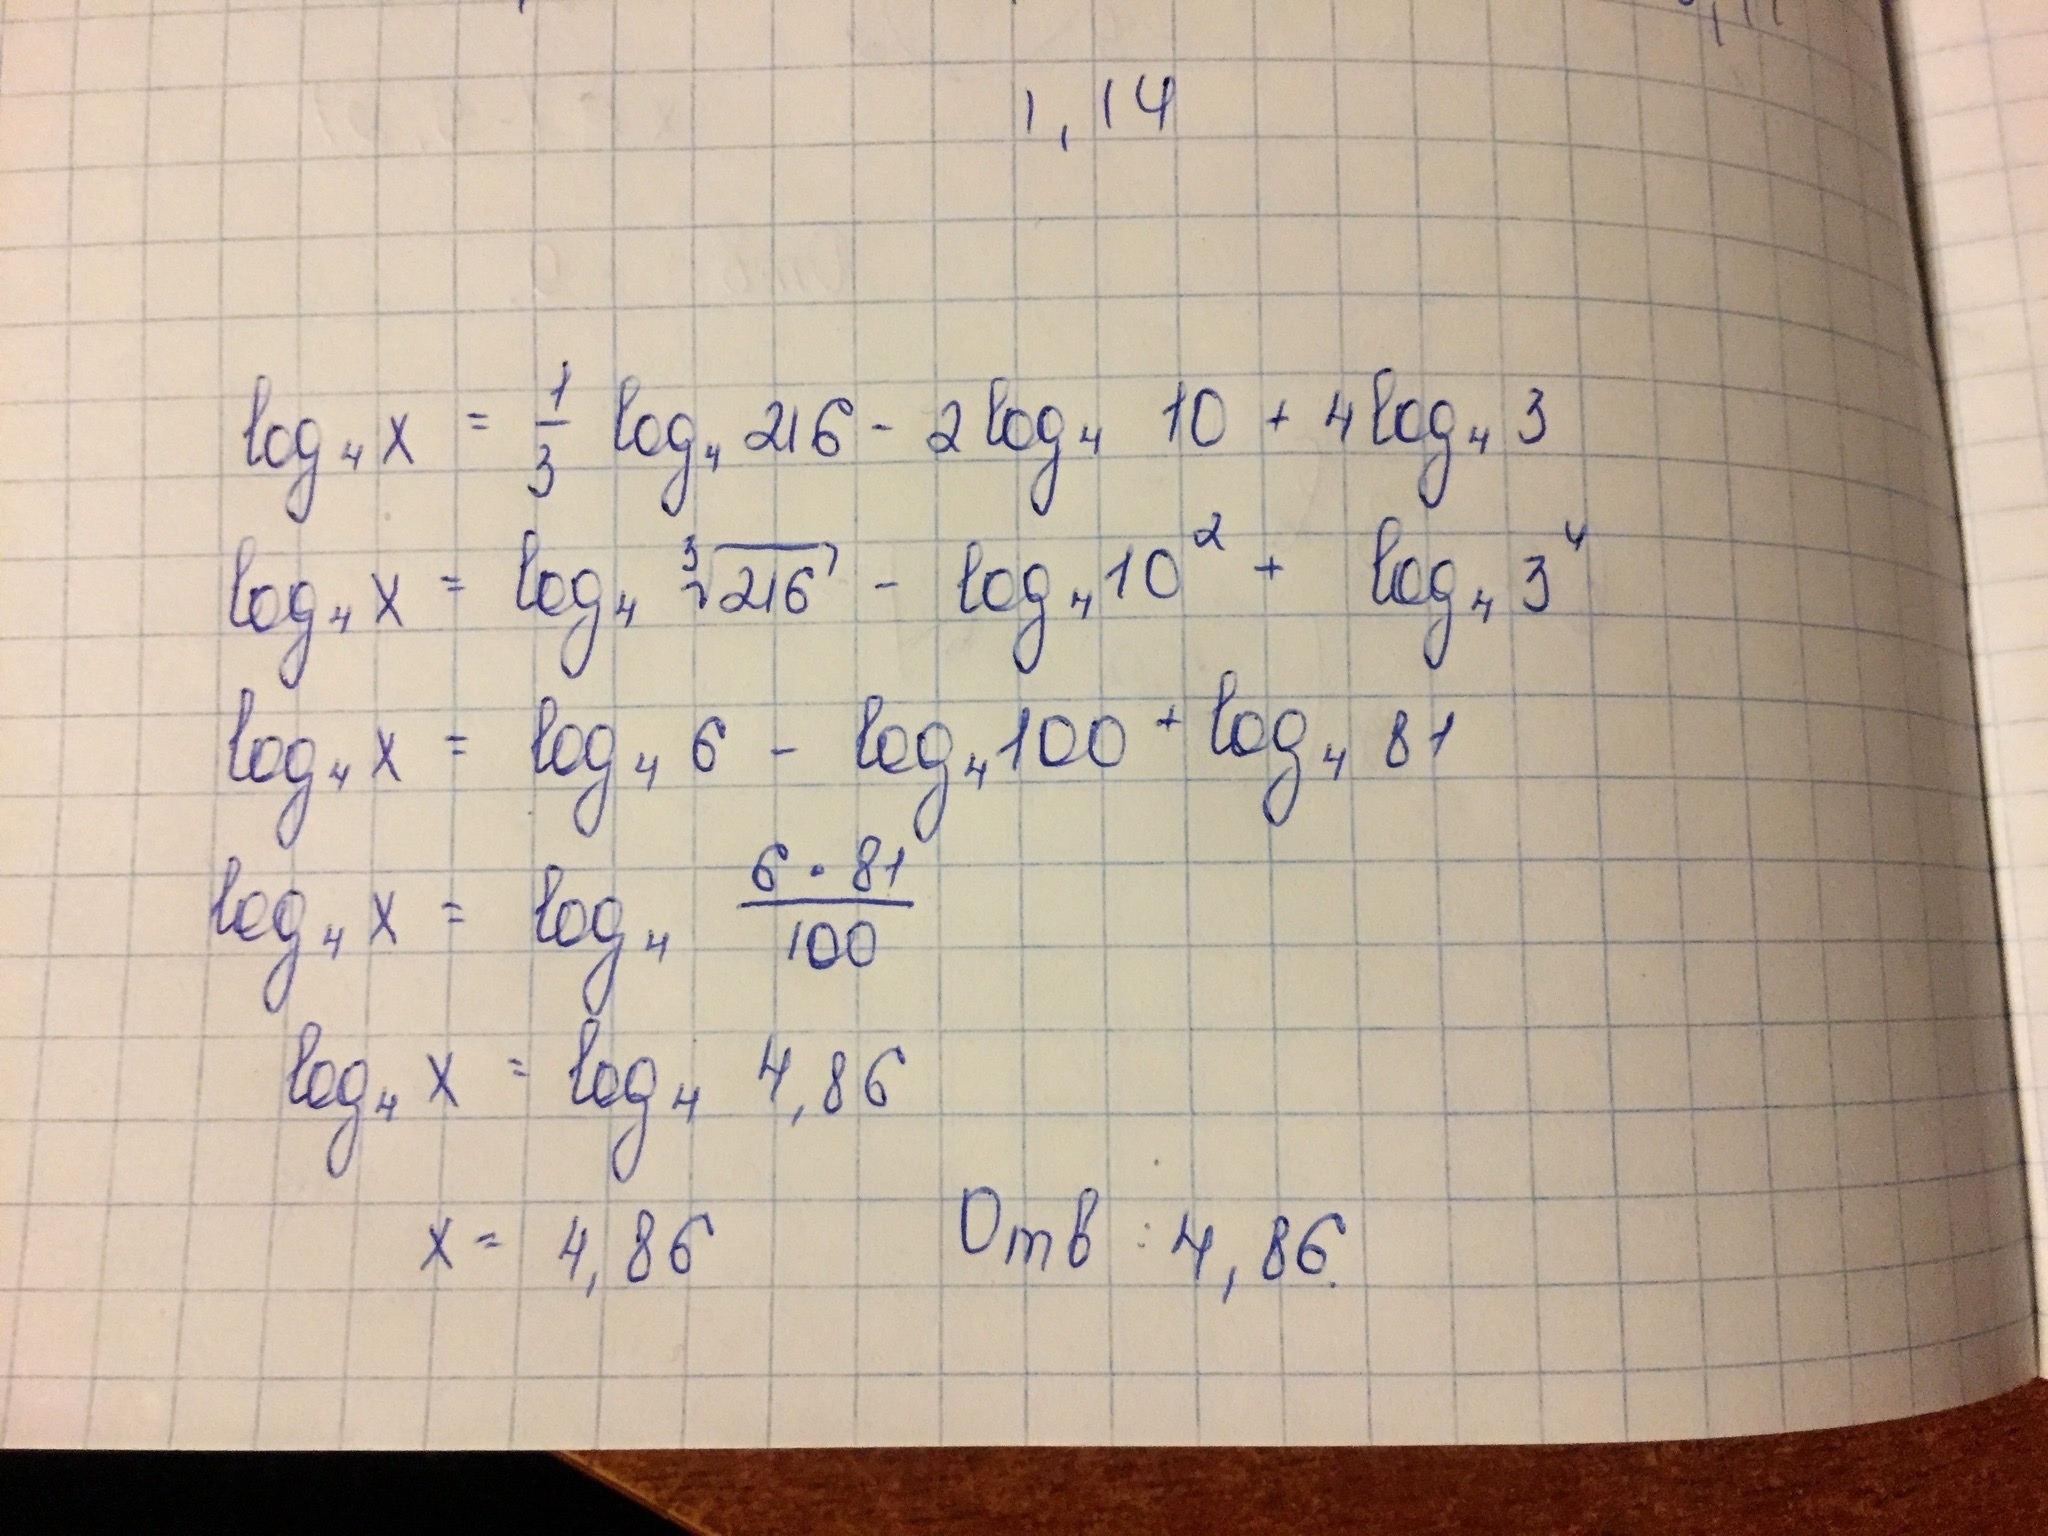 1,14
log₄ x = 1/3 log₄ 216 - 2 log₄ 10 + 4 log₄ 3
log₄ x = log₄ ³√216 - log₄ 10² + log₄ 3⁴
log₄ x = log₄ 6 - log₄ 100 + log₄ 81
log₄ x = log₄ 6 · 81 / 100
log₄ x = log₄ 4,86
x = 4,86 Отв : 4,86.